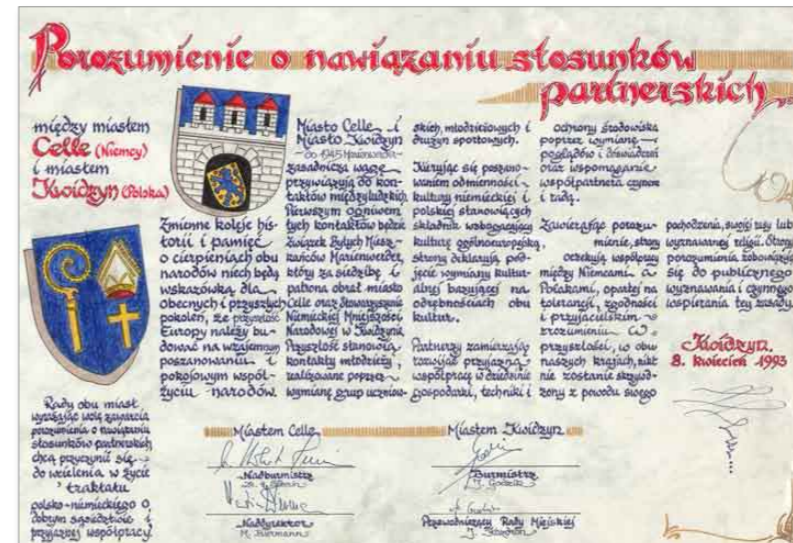 Porozumienie o nawiązaniu stosunków
partnerskich
między miastem
Celle (Niemcy)
i miastem
Kwidzyn (Polska)
Zmienne koleje his-
torii i pamięć
o cierpieniach obu
narodów niech będą
wskazówką dla
obecnych i przyszłych
pokoleń, że przyszłość
Europy należy bu-
dować na wzajemnym
poszanowaniu i
pokojowym współ-
życiu narodów.
Rady obu miast
wyrażając wolę zawarcia
porozumienia o nawiązaniu
stosunków partnerskich
chcą przyczynić się
do wcielenia w życie
traktatu
polsko-niemieckiego o
dobrym sąsiedztwie i
przyjaznej współpracy.
Miasto Celle i
Miasto Kwidzyn
- do 1945 Marienwerder -
zasadniczą wagę
przywiązują do kon-
taktów międzyludzkich.
Pierwszym ogniwem
tych kontaktów będzie
Związek Byłych Miesz-
kańców Marienwerder,
który za siedzibę i
patrona obrał miasto
Celle oraz Stowarzyszenie
Niemieckiej Mniejszości
Narodowej w Kwidzynie.
Przyszłość stanowią
kontakty młodzieży,
realizowane poprzez
wymianę grup uczniow-
skich, młodzieżowych i
drużyn sportowych.
Kierując się poszano-
waniem odmienności
kultury niemieckiej i
polskiej stanowiących
składnik wzbogacający
kulturę ogólnoeuropejską,
strony deklarują pod-
jęcie wymiany kultur-
alnej bazującej na
odrębnościach obu
kultur.
Partnerzy zamierzają
rozwijać przyjazną
współpracę w dziedzinie
gospodarki, techniki i
ochrony środowiska
poprzez wymianę
poglądów i doświadczeń
oraz wspomaganie
współpartnera czynem
i radą.
Zawierając porozu-
mienie, strony
oczekują współpracy
między Niemcami a
Polakami, opartej na
tolerancji, zgodności
i przyjacielskim
zrozumieniu. W
przyszłości, w obu
naszych krajach, nikt
nie zostanie skrzyw-
dzony z powodu swego
pochodzenia, swojej rasy lub
wyznawanej religii. Strony
porozumienia zobowiązują
się do publicznego
wyznawania i czynnego
wspierania tej zasady.
Kwidzyn,
8. kwiecień 1993
Miastem Celle
Nadburmistrz
Naddyrektor
M. Biermann
Miastem Kwidzyn
Burmistrz
Przewodniczący Rady Miejskiej